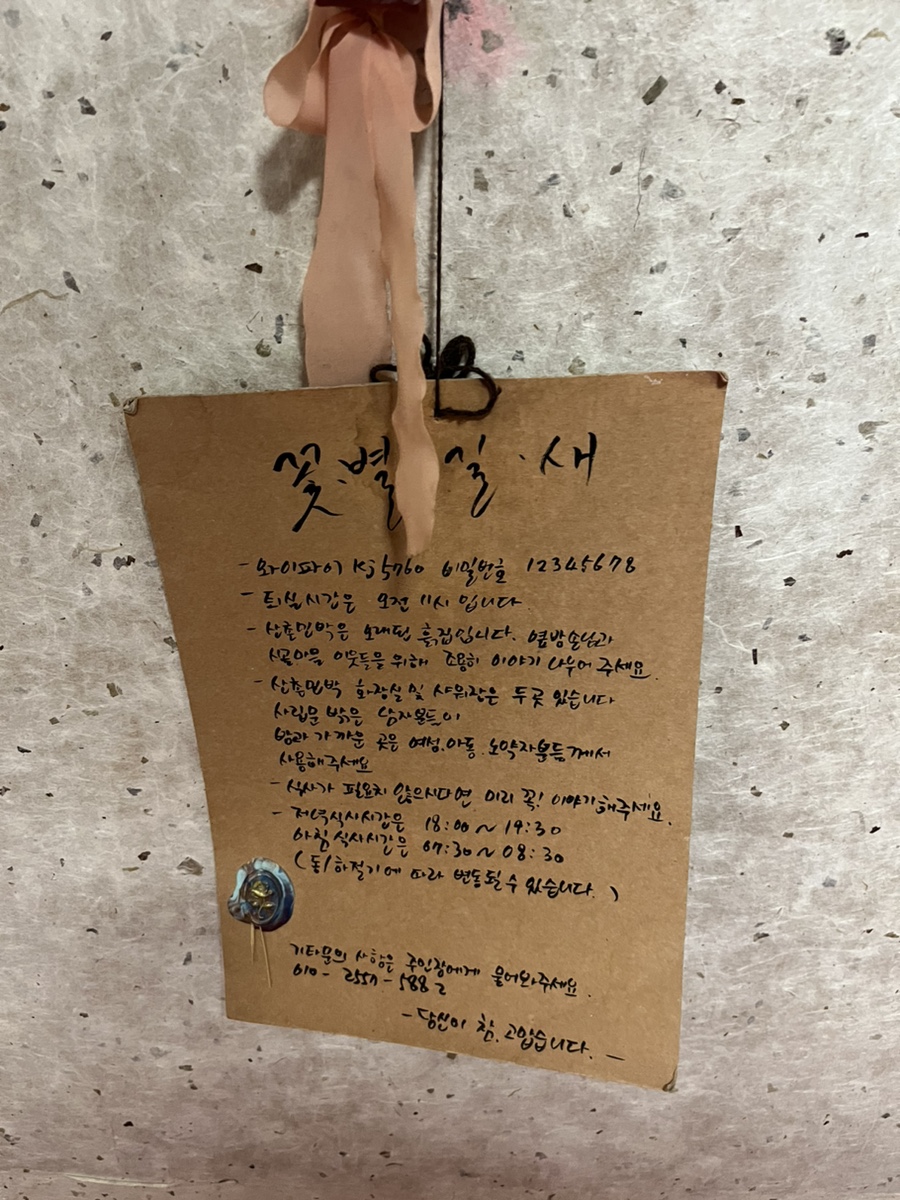 꽃.별 길.새
- 와이파이 kj5760 비밀번호 12345678
- 퇴실시간은 오전 11시 입니다
- 산촌민박은 오래된 흙집입니다. 옆방손님과
시골마을 이웃들을 위해 조용히 이야기 나누어 주세요.
- 산촌민박 화장실 및 샤워장은 두곳 있습니다
사립문 밖은 남자분들이
방과 가까운 곳은 여성.아동.노약자분들께서
사용해주세요
- 식사가 필요치 않으시다면 미리 꼭! 이야기해주세요.
- 저녁식사시간은 18:00~19:30
아침식사시간은 07:30~08:30
(동/하절기에 따라 변동될 수 있습니다.)
기타문의 사항은 주인장에게 물어봐주세요.
010-2557-5882
- 당신이 참, 고맙습니다. -